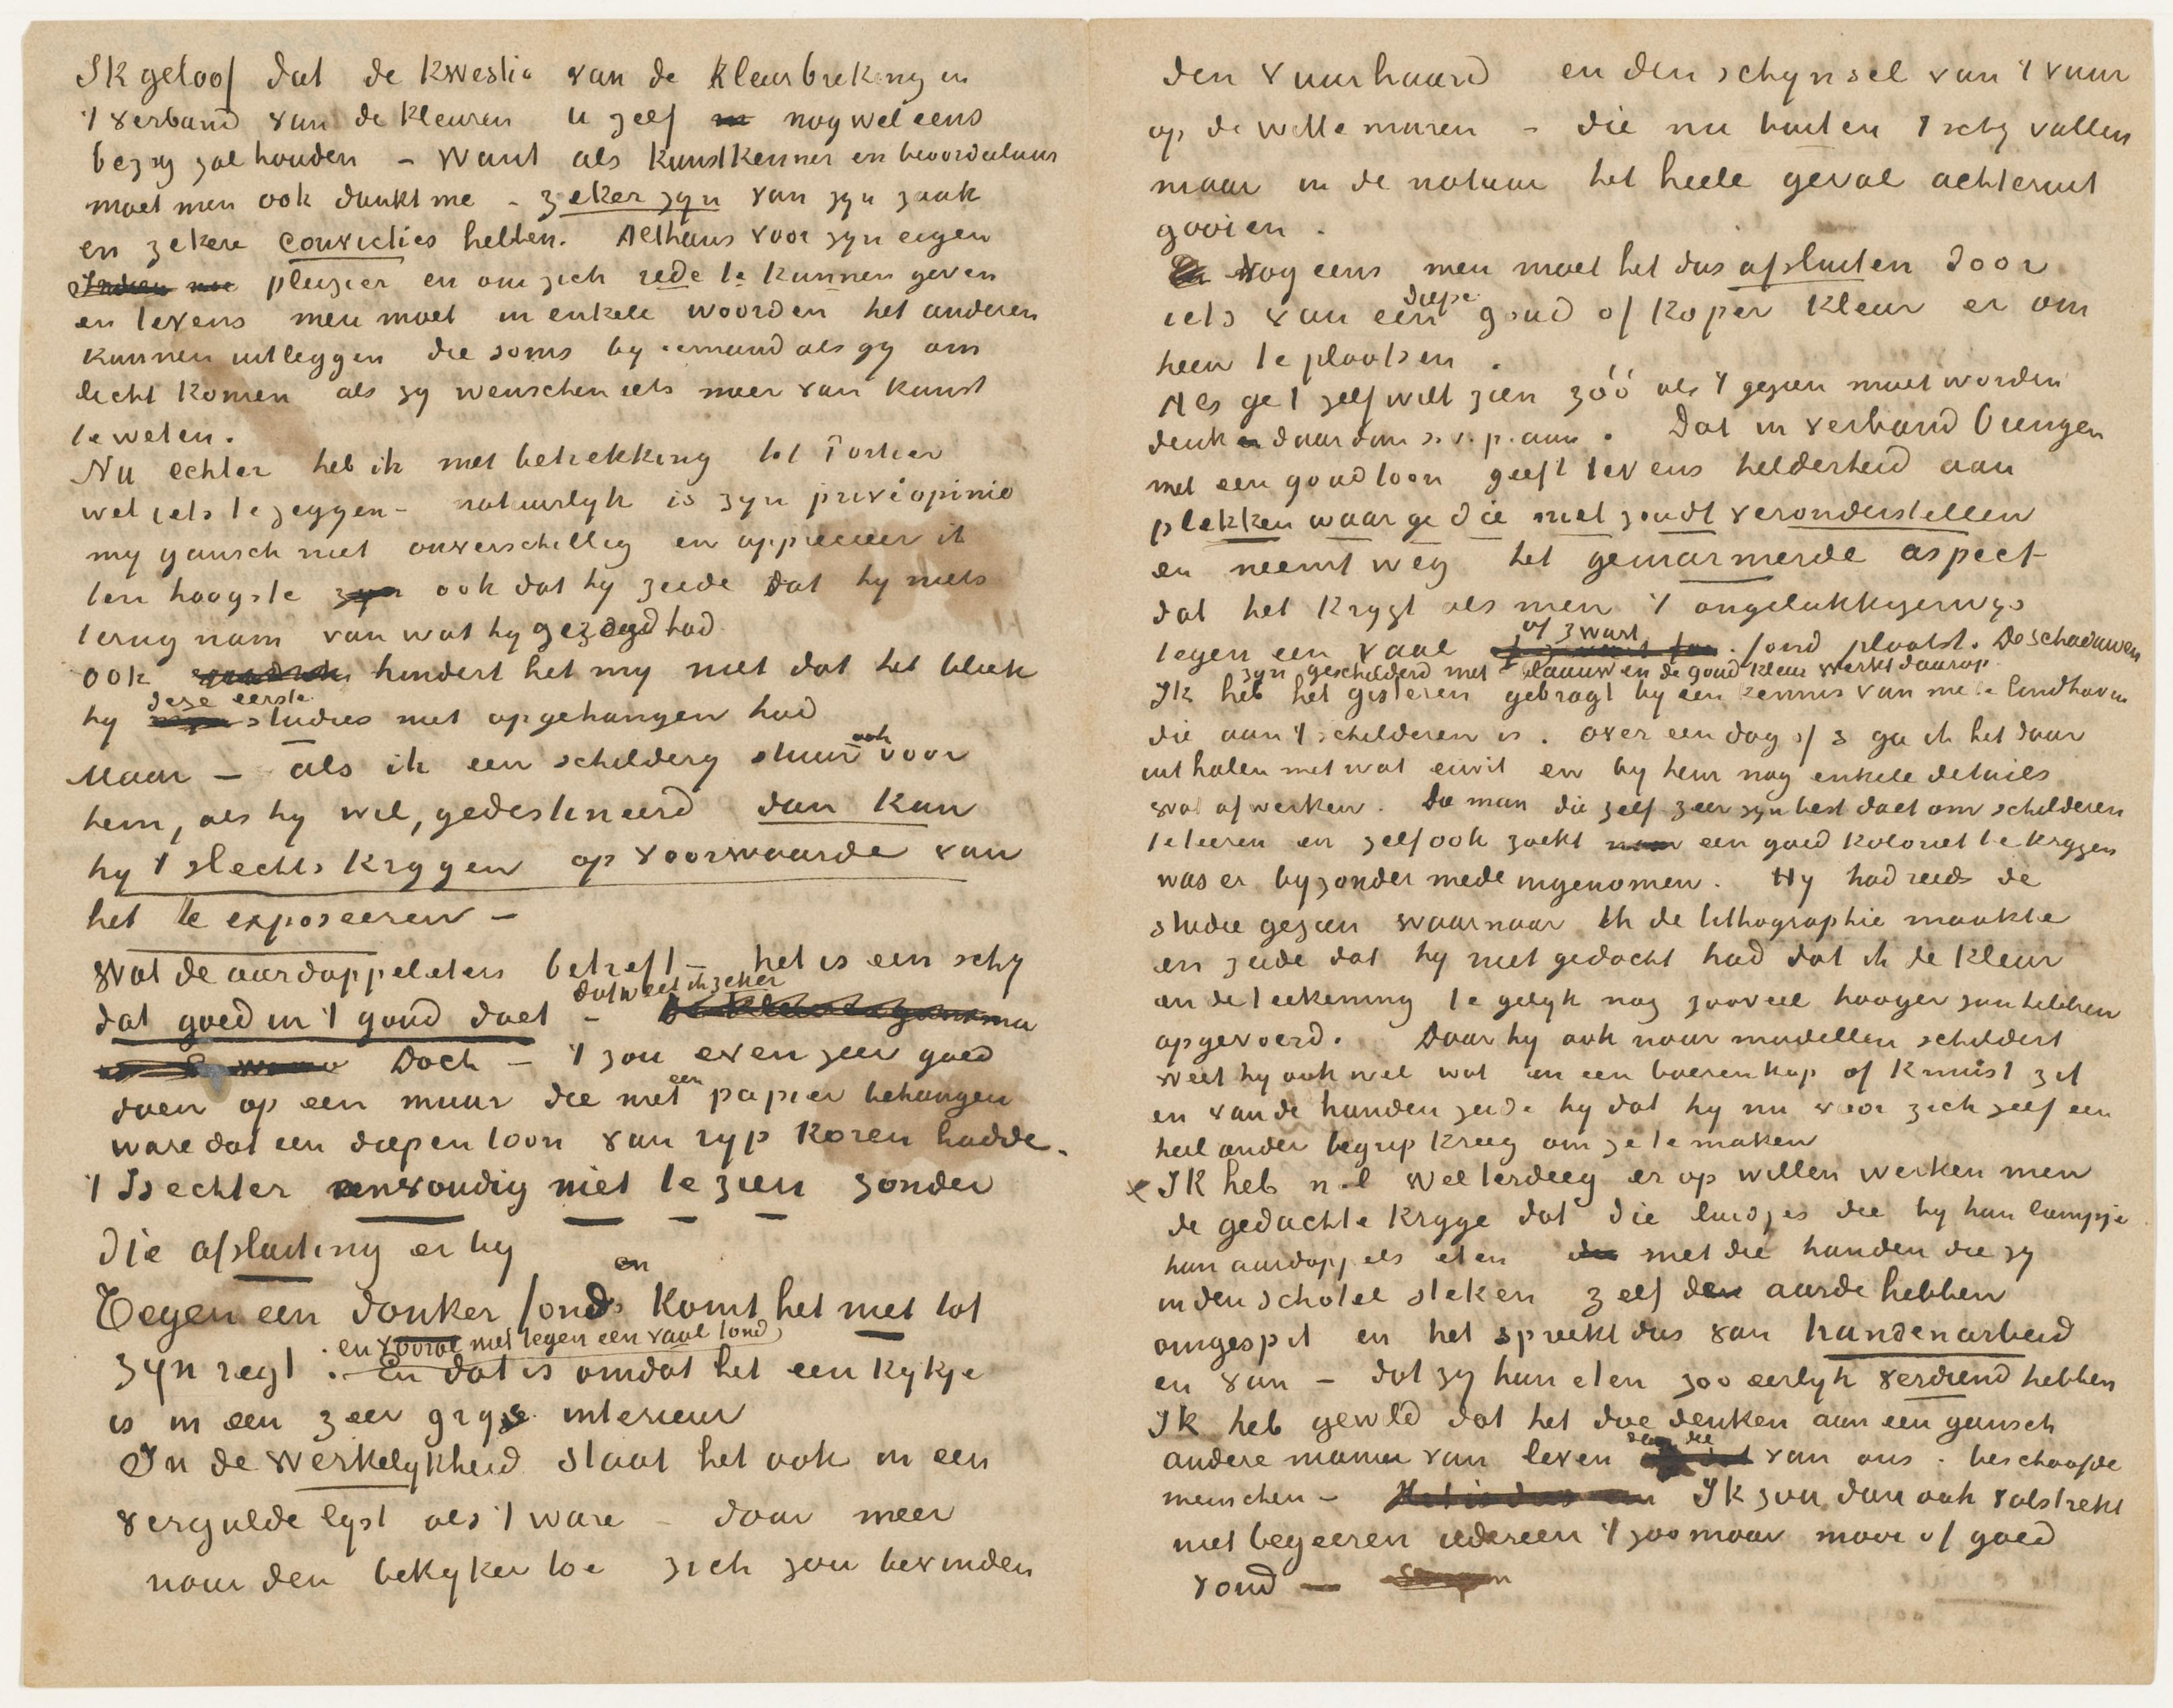 Ik geloof dat de kwestie van de kleurbreking en
't verband van de kleuren U zelf nog wel eens
bezig zal houden – want als kunstkenner en beoordeelaar
moet men ook dunkt me – zeker zyn van zyn zaak
en zekere convicties hebben. Althans voor zyn eigen
pleizier en om zich rede te kunnen geven
en tevens men moet in enkele woorden het anderen
kunnen uitleggen die soms by iemand als gy om
licht komen als zy wenschen iets meer van kunst
te weten.
Nu echter heb ik met betrekking tot Portier
wel iets te zeggen – natuurlyk is zyn privéopinie
my gansch niet onverschillig en apprecieer ik
ten hoogste ook dat hy zeide dat hy niets
terug nam van wat hy gezegd had.
Ook hindert het my niet dat het bleek
hy deze eerste studies niet opgehangen had
Maar – als ik een schildery stuur ook voor
hem, als hy wil, gedestineerd dan kan
hy 't slechts krygen op voorwaarde van
het te exposeeren –
Wat de aardappeleters betreft – het is een schy
dat goed in 't goud doet – dat weet ik zeker
Doch – 't zou even zeer goed
doen op een muur die met een papier behangen
ware dat een diepen toon van ryp koren hadde.
't Is echter eenvoudig niet te zien zonder
die afsluiting er by
Tegen een donker fond komt het niet tot
zyn regt en vooral niet tegen een vaal fond.
En dat is omdat het een kykje
is in een zeer gryze interieur
In de werkelykheid staat het ook in een
vergulde lyst als 't ware – daar meer
naar den bekyker toe zich zou bevinden
den vuurhaard en den schynsel van 't vuur
op de witte muren – die nu buiten 't schy vallen
maar in de natuur het heele geval achteruit
gooien.
Nog eens men moet het dus afsluiten door
iets van een diepe goud of koper kleur er om
heen te plaatsen.
Als ge 't zelf wilt zien zóó als 't gezien moet worden
denk daar dan s.v.p. aan. Dat in verband brengen
met een goudtoon geeft tevens helderheid aan
plekken waar ge die niet zoudt veronderstellen
en neemt weg het gemarmerde aspect
dat het krygt als men 't ongelukkigerwys
tegen een vaal of zwart fond plaatst. De schaduwen
zyn geschilderd met blaauw en de goud kleur werkt daarop.
Ik heb het gisteren gebragt by een kennis van me te Eindhoven
die aan 't schilderen is. Over een dag of 3 ga ik het daar
uithalen met wat eiwit en by hem nog enkele details
wat afwerken. De man die zelf zeer zyn best doet om schilderen
te leeren en zelf ook zoekt een goed koloriet te krygen
was er byzonder mede ingenomen. Hy had reeds de
studie gezien waarnaar ik de lithographie maakte
en zeide dat hy niet gedacht had dat ik de kleur
en de teekening te gelyk nog zooveel hooger zou hebben
opgevoerd. Daar hy ook naar modellen schildert
weet hy ook wel wat in een boerenkop of knuist zit
en van de handen zeide hy dat hy nu voor zich zelf een
heel ander begrip kreeg om ze te maken
Ik heb n.l. wel terdeeg er op willen werken men
de gedachte kryge dat die luidjes die by hun lampje
hun aardappels eten met die handen die zy
in den schotel steken zelf de aarde hebben
omgespit en het spreekt dus van handenarbeid
en van – dat zy hun eten zoo eerlyk verdiend hebben
Ik heb gewild dat het doe denken aan een gansch
andere manier van leven dan die van ons. beschaafde
menschen – Ik zou dan ook volstrekt
niet begeeren iedereen 't zoo maar mooi of goed
vond –